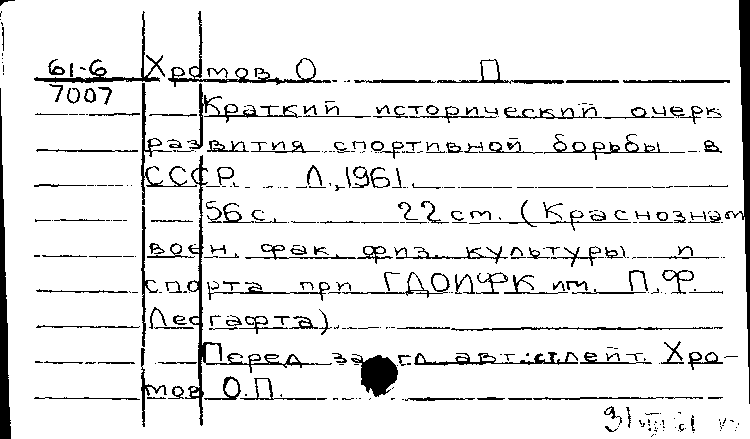 61-6 Хромов, О П
7007
Краткий исторический очерк
развития спортивной борьбы в
СССР. Л., 1961.
56 с. 22 см. (Краснознам
воен. фак. физ. культуры и
спорта при ГДОИФК им. П.Ф.
Лесгафта)
Перед загл. авт.: ст. лейт. Хро-
мов О.П.
31 VIII 61